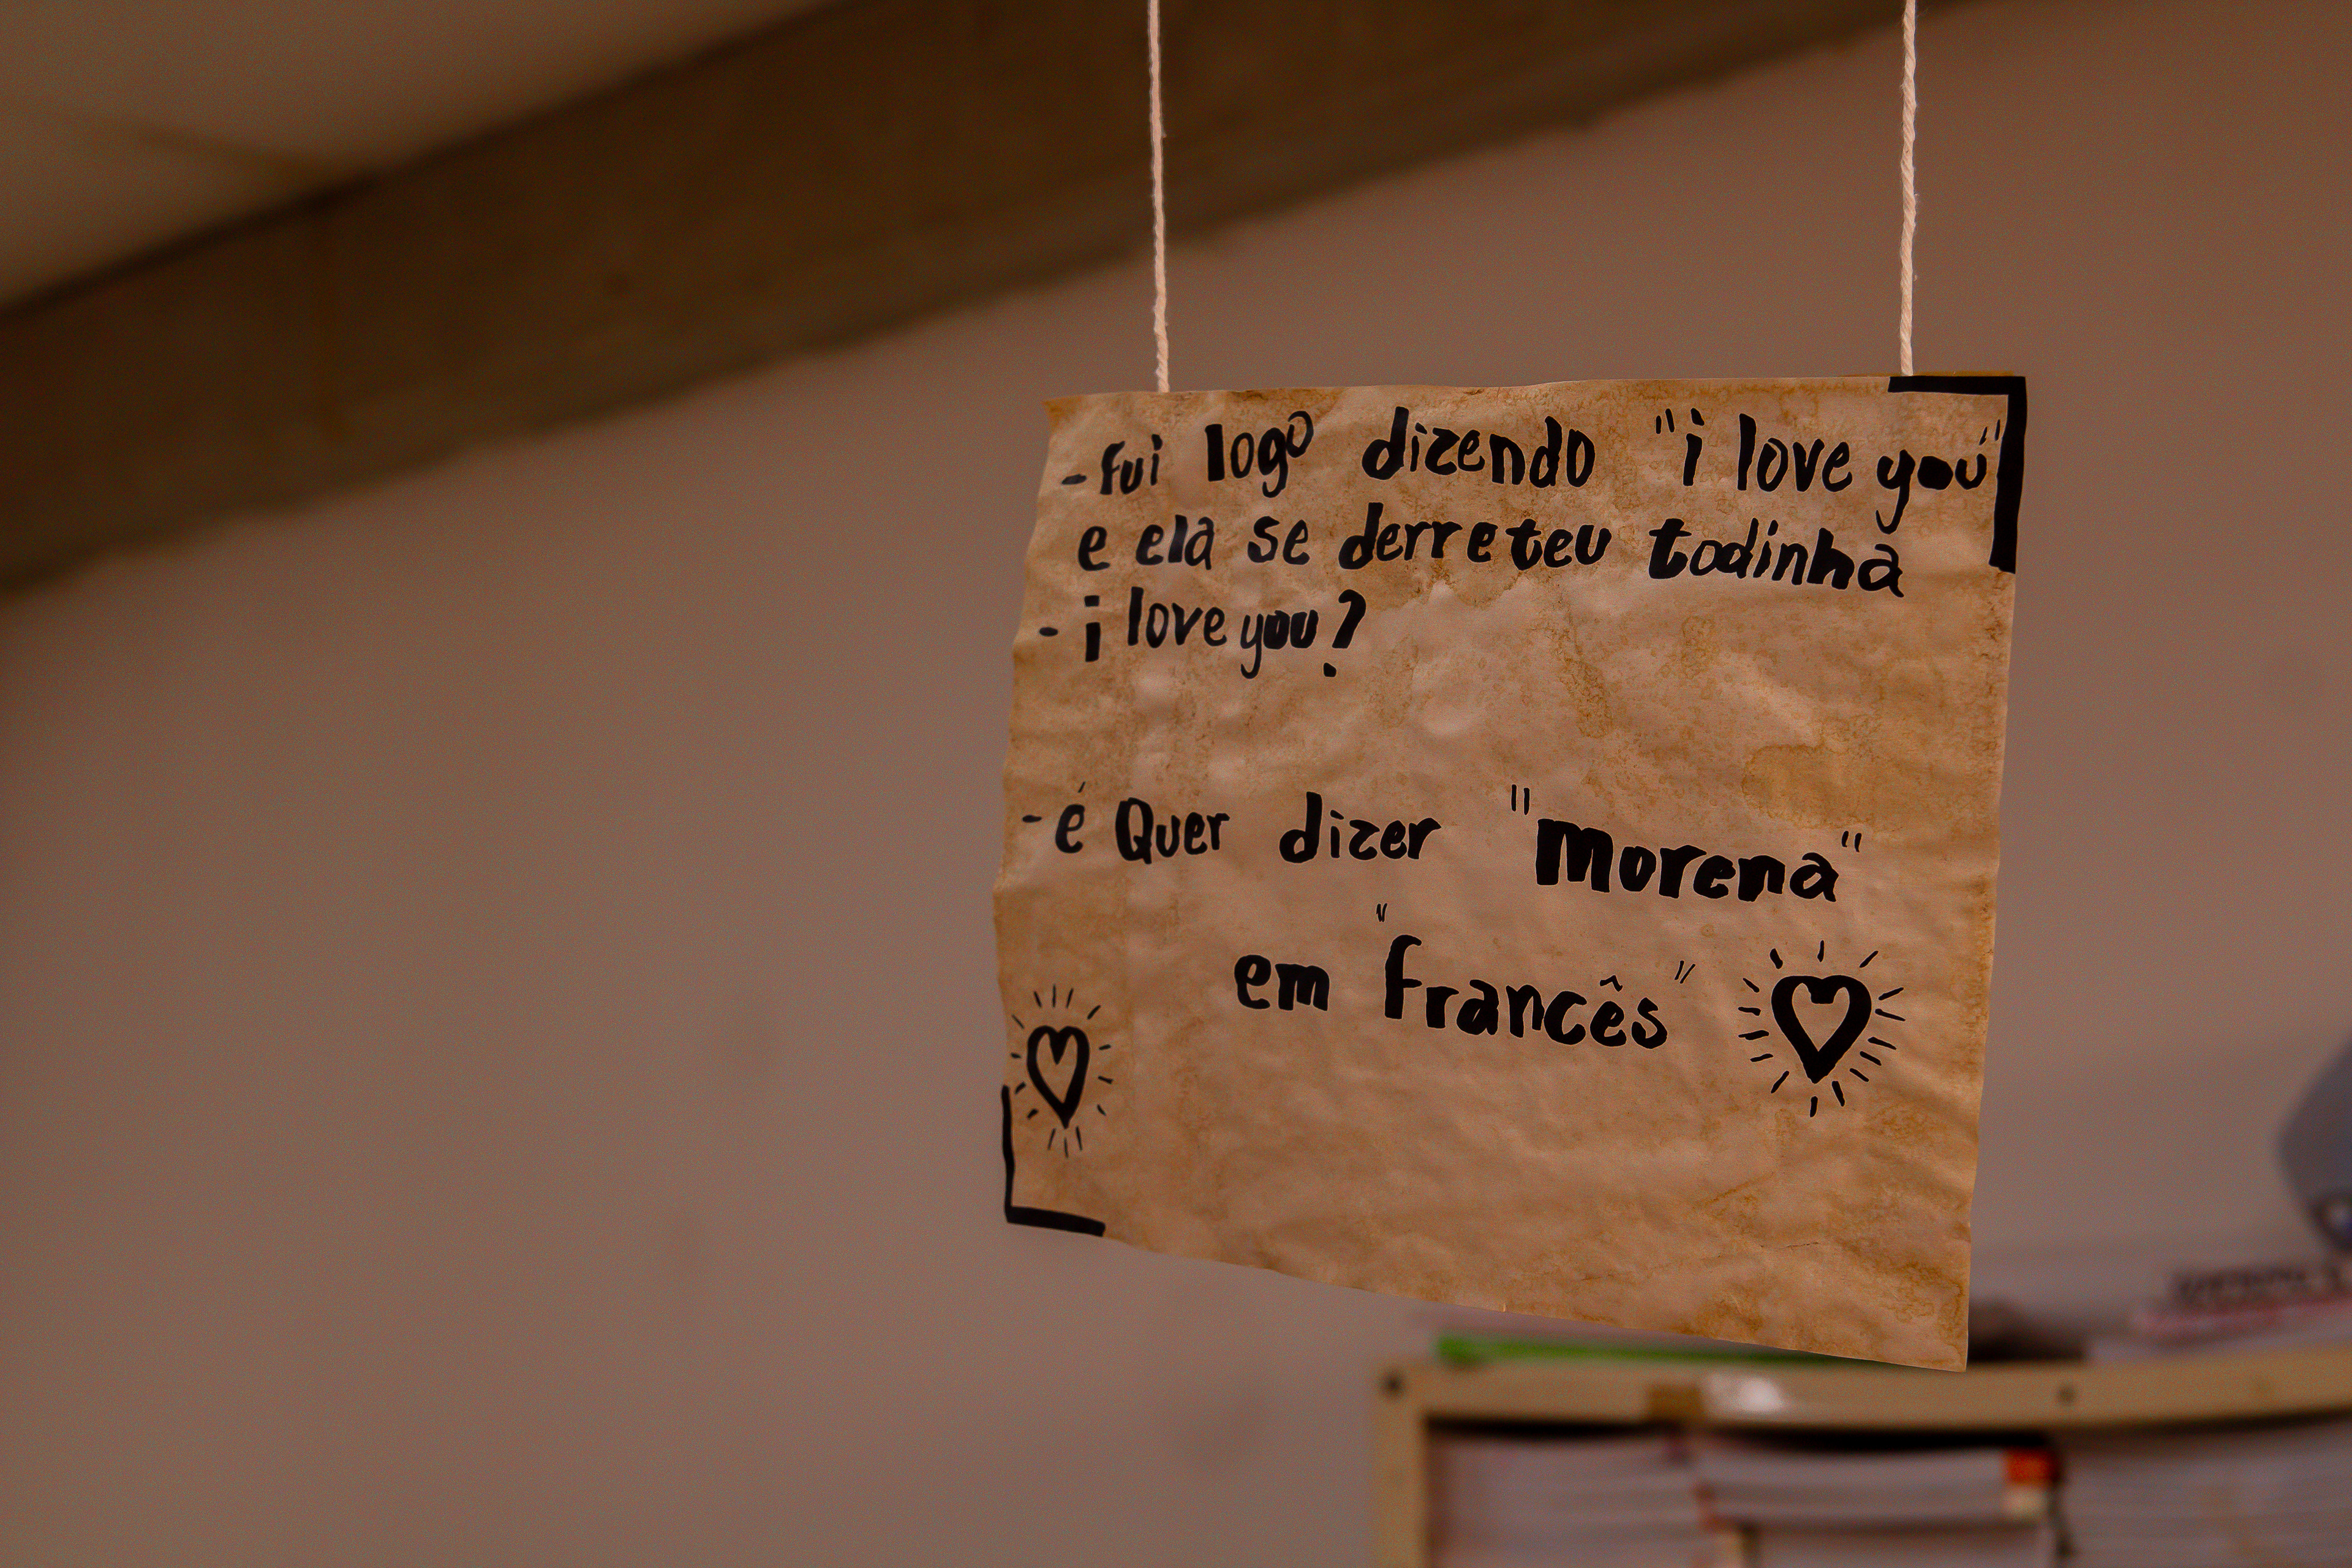 -fui logo dizendo "i love you"
e ela se derreteu todinha
- i love you?
- é Quer dizer "morena"
em "francês"